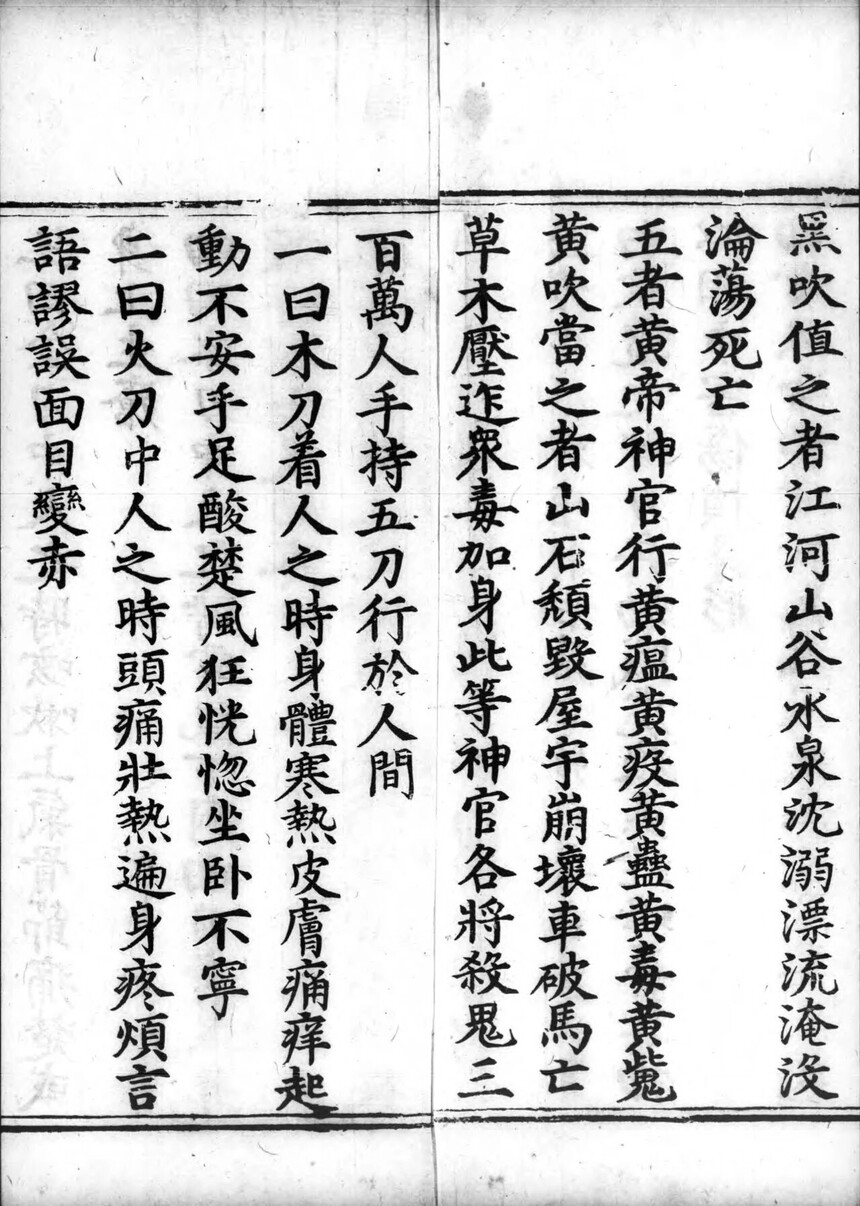 黑吹值之者江河山谷水泉沈溺漂流淹没
淪蕩死亡
五者黄帝神官行黄瘟黄疫黄蠱黄毒黄𩲃
黄吹當之者山石頹毀屋宇崩壞車破馬亡
草木壓迮衆毒加身此等神官各將殺鬼三
百萬人手持五刀行於人間
一曰木刀着人之時身體寒熱皮膚痛痒起
動不安手足酸楚風狂恍惚坐卧不寧
二曰火刀中人之時頭痛壯熱遍身疼煩言
語謬誤面目變赤